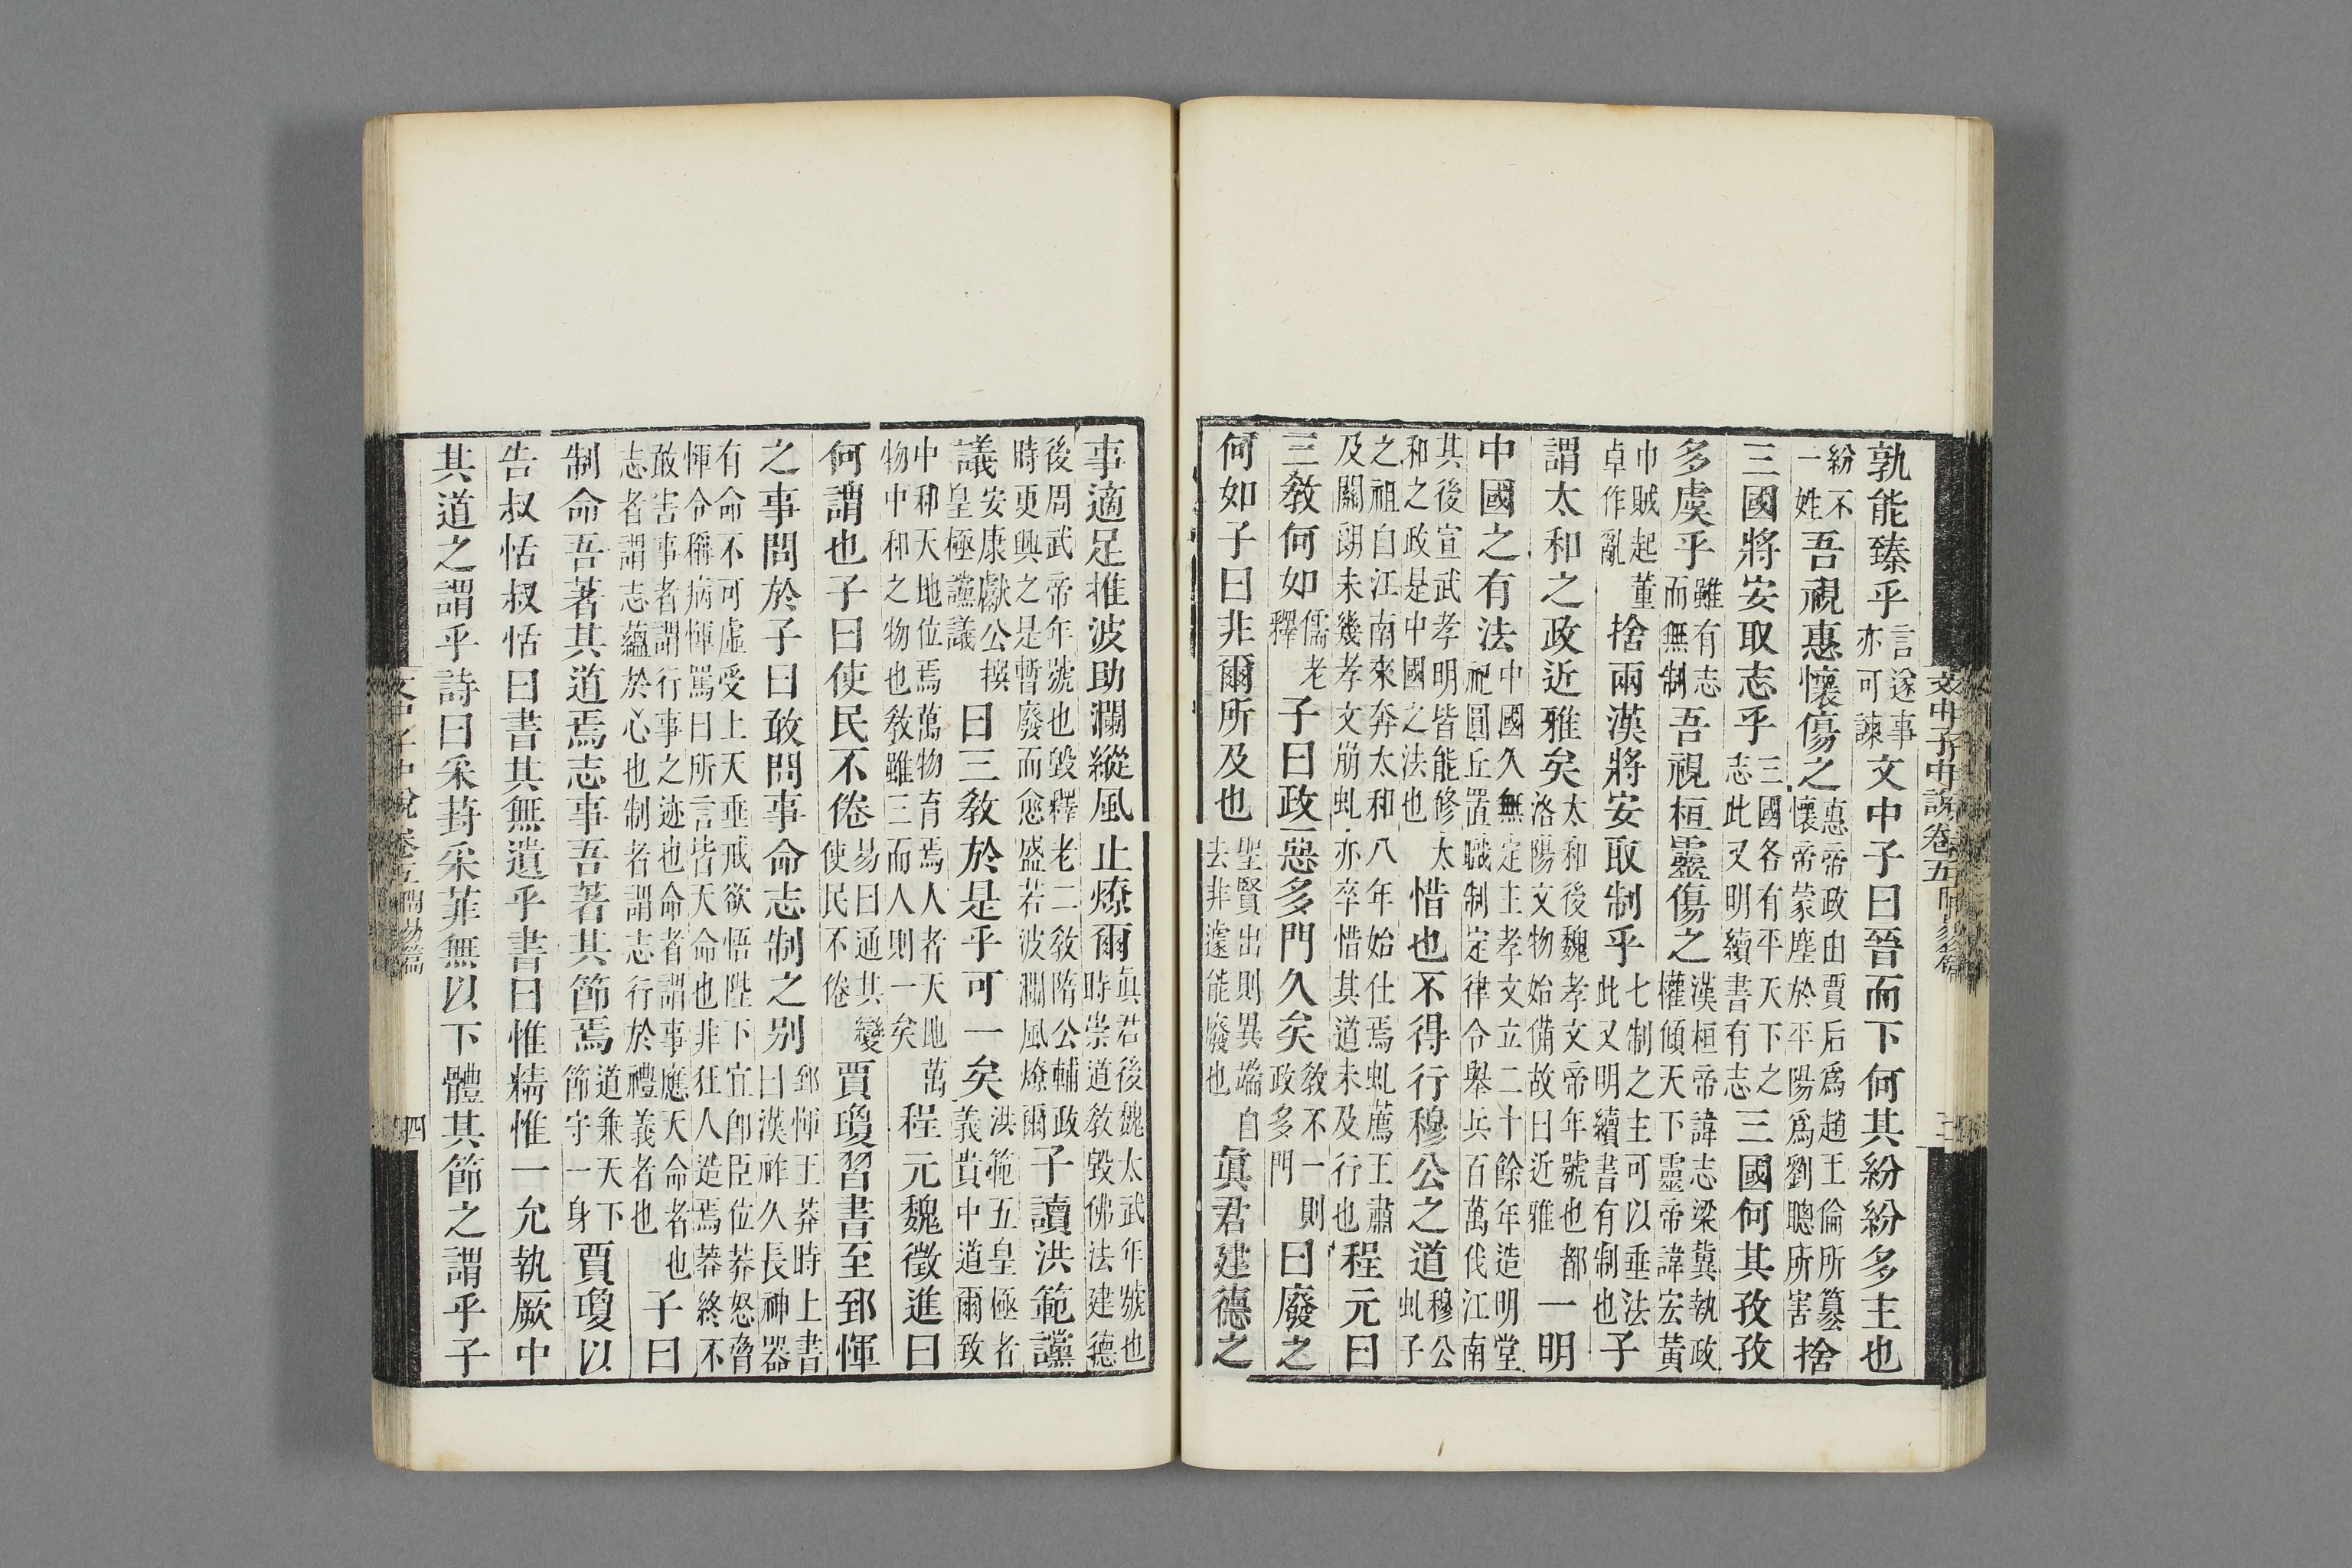 孰能臻乎言遂事亦可諫文中子曰晉而下何其紛紛多主也
紛不一姓吾視惠懷傷之惠帝政由賈后爲趙王倫所簒懷帝蒙塵於平陽爲劉聰所害捨
三國將安取志乎三國各有平天下之志此又明續書有志三國何其孜孜
多虞乎雖有志而無制吾視桓靈傷之漢桓帝諱志梁冀執政權傾天下靈帝諱宏黃
巾賊起董卓作亂捨兩漢將安取制乎七制之主可以垂法此又明續書有制也子
謂太和之政近雅矣太和後魏孝文帝年號也都洛陽文物始備故曰近雅一明
中國之有法中國久無定主孝文立二十餘年造明堂祀圓丘置職制定律令舉兵百萬伐江南
其後宣武孝明皆能修太和之政是中國之法也惜也不得行穆公之道穆公虬子
之祖自江南來奔太和八年始仕焉虬薦王肅及關朗未幾孝文崩虬亦卒惜其道未及行也程元曰
三敎何如儒老釋子曰政惡多門久矣敎不一則政多門曰廢之
何如子曰非爾所及也聖賢出則異端自去非遽能廢也眞君建德之
文中子中說卷五問易篇
三
事適足推波助瀾縱風止燎爾眞君後魏太武年號也時崇道敎毀佛法建德
後周武帝年號也毀釋老二敎隋公輔政時更興之是暫廢而愈盛若波瀾風燎爾子讀洪範讜
議安康獻公撰皇極讜議曰三敎於是乎可一矣洪範五皇極者義貴中道爾致
中和天地位焉萬物育焉人者天地萬物中和之物也敎雖三而人則一矣程元魏徵進曰
何謂也子曰使民不倦易曰通其變使民不倦賈瓊習書至郅惲
之事問於子曰敢問事命志制之别郅惲王莽時上書曰漢祚久長神器
有命不可虛受上天垂戒欲悟陛下宜卽臣位莽怒脅惲令稱病惲罵曰所言皆天命也非狂人造焉莽終不
敢害事者謂行事之迹也命者謂事應天命者也志者謂志蘊於心也制者謂志行於禮義者也子曰
制命吾著其道焉志事吾著其節焉道兼天下節守一身賈瓊以
告叔恬叔恬曰書其無遺乎書曰惟精惟一允執厥中
其道之謂乎詩曰采葑采菲無以下體其節之謂乎子
文中子中說卷五問易篇
四